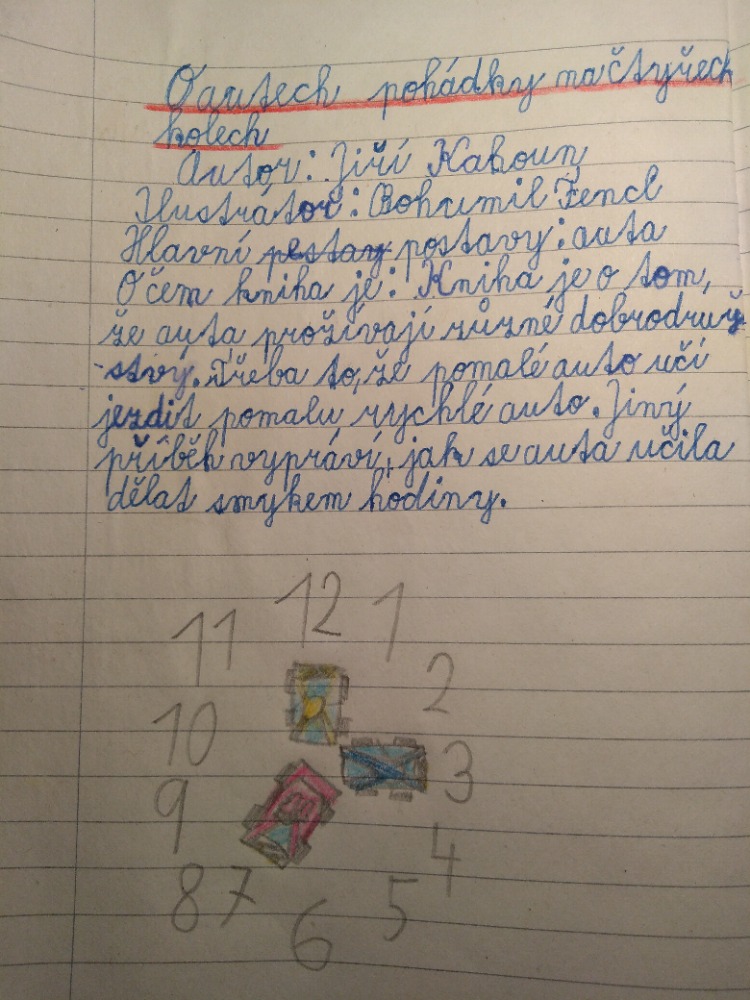 O autech pohádky na čtyřech
kolech
Autor: Jiří Kahoun
Ilustrátor: Bohumil Fencl
Hlavní postavy: auta
O čem kniha je: Kniha je o tom,
že auta prožívají různé dobrodruž
stvý. Třeba to, že pomalé auto učí
jezdit pomalu rychlé auto. Jiný
příběh vypráví, jak se auta učila
dělat smykem hodiny.
12
11 1
2
10
3
9
4
8 7 5
6